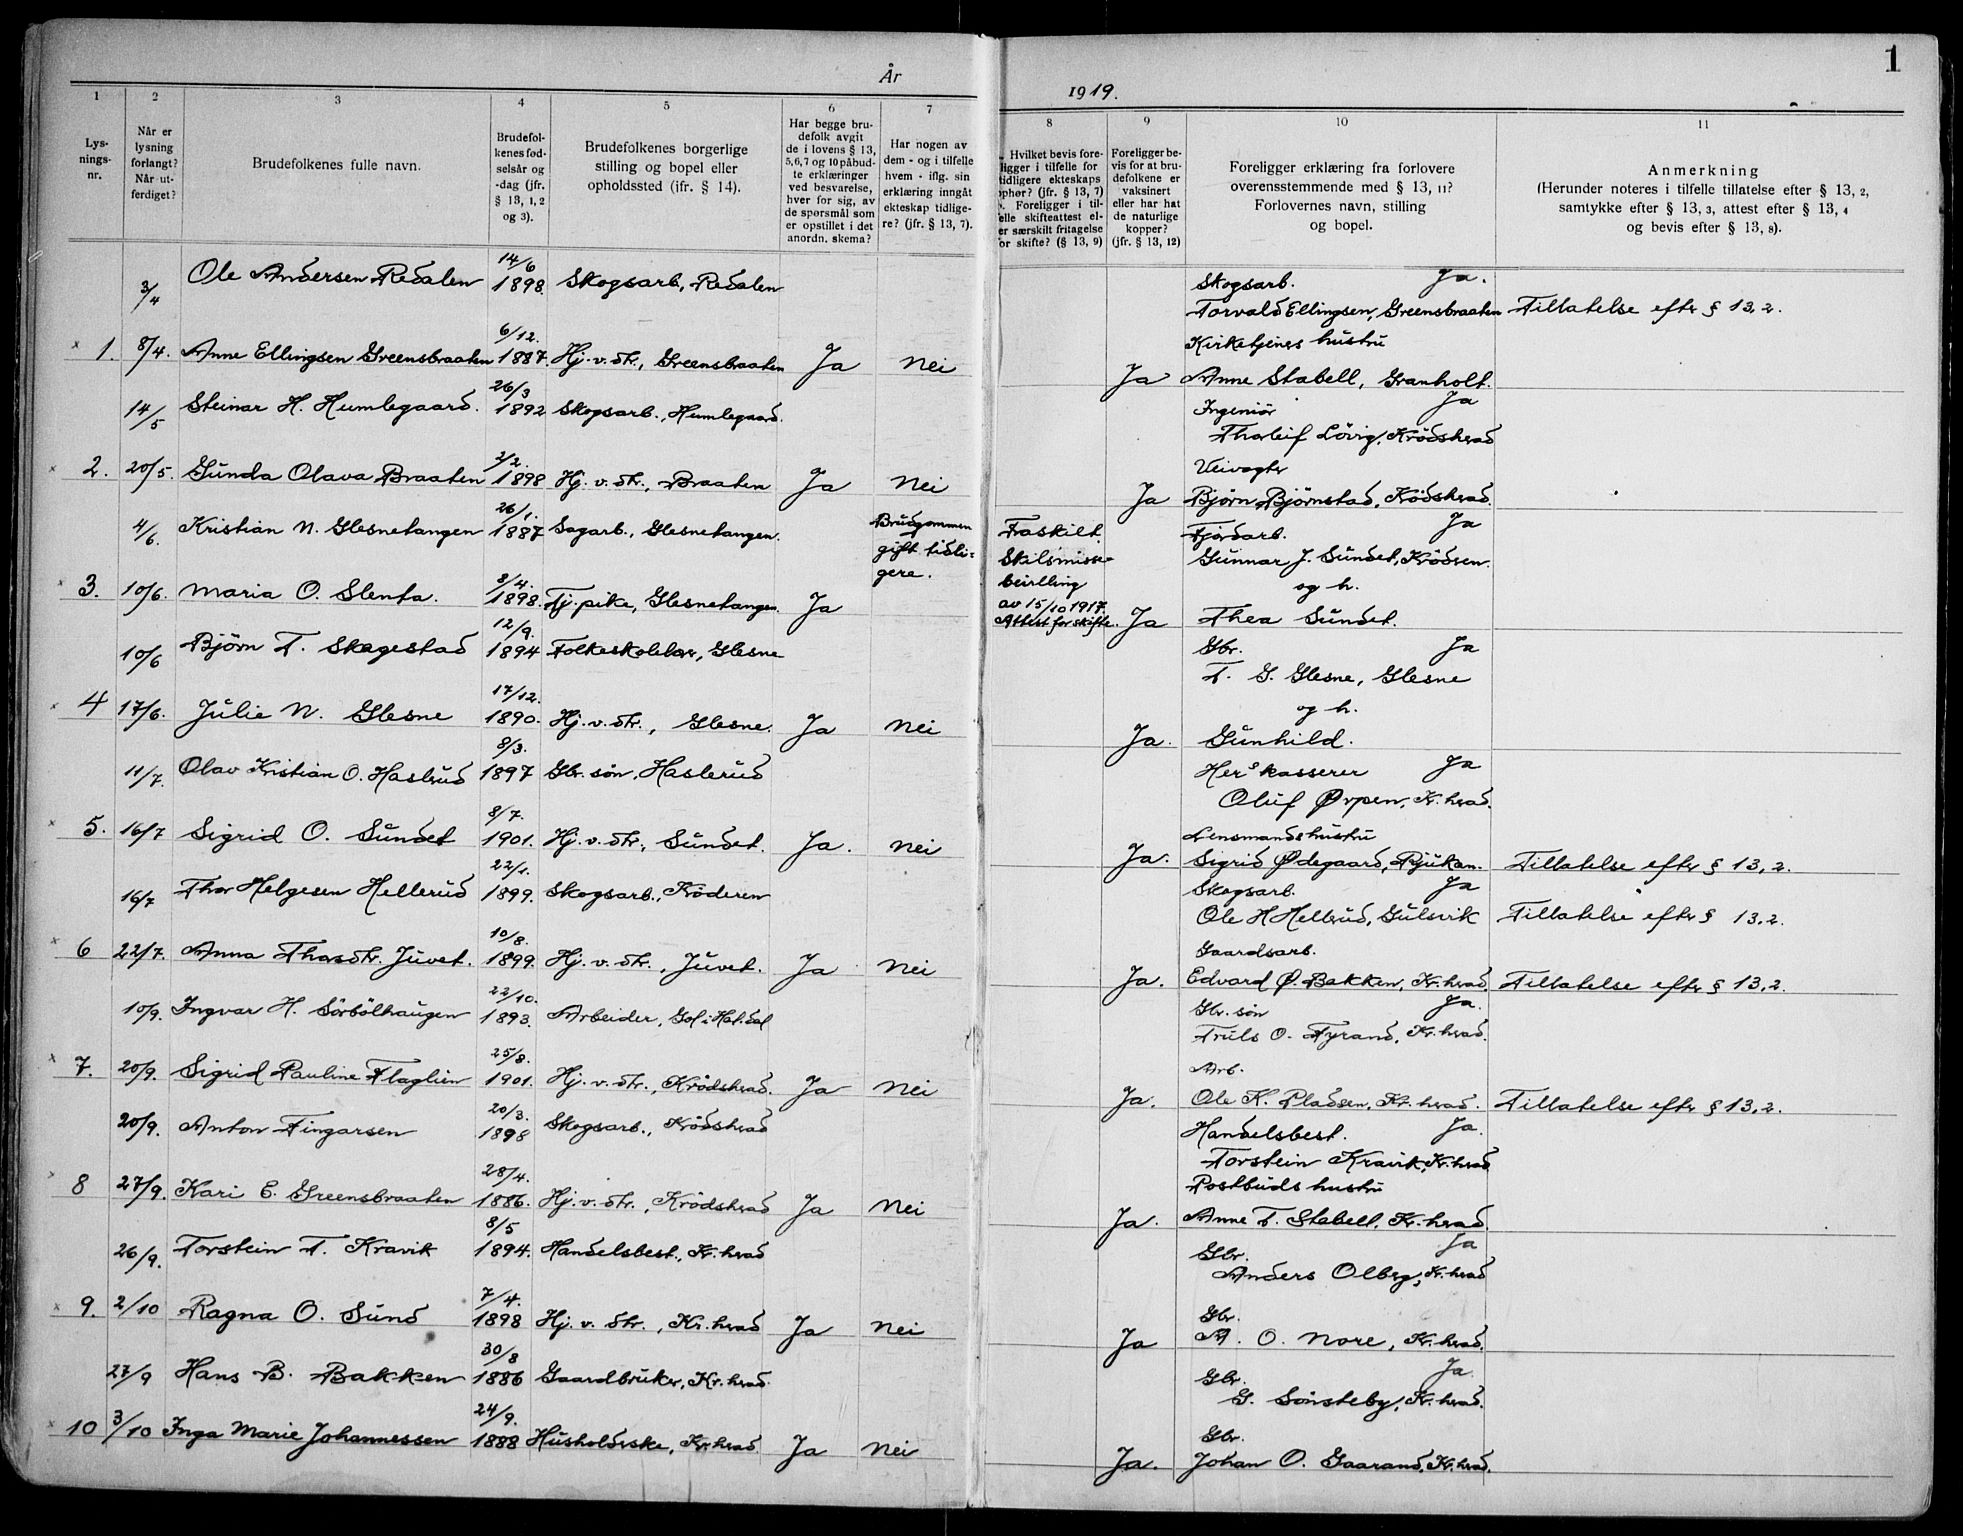 1
År 1919.
1 2 3 4 5 6 7 8 9 10 11
Lys-
nings-
nr.
Når er
lysning
forlangt?
Når ut-
ferdiget?
Brudefolkenes fulle navn.
Brudefol-
kenes fød-
selsår og
-dag (jfr.
§ 13, 1, 2
og 3).
Brudefolkenes borgerlige
stilling og bopel eller
opholdssted (ifr. § 14).
Har begge bru-
defolk avgit
de i lovens § 13,
5,6,7 og 10 påbud-
te erklæringer
ved besvarelse,
hver for sig, av
de spørsmål som
er opstillet i det
anordn. skema?
Har nogen av
dem - og i tilfelle
hvem - iflg. sin
erklæring inngåt
ekteskap tidlige-
re? (jfr. § 13, 7).
Hvilket bevis fore-
ligger i tilfelle for
tidligere ekteskaps
ophør? (jfr. § 13, 7)
Foreligger i til-
felle skifteattest el-
er særskilt fritagelse
for skifte? (§ 13, 9)
Foreligger be-
vis for at bru-
defolkene er
vaksinert
eller har hat
de naturlige
kopper?
(jfr. § 13, 12)
Foreligger erklæring fra forlovere
overensstemmende med § 13, 11?
Forlovernes navn, stilling
og bopel.
Anmerkning
(Herunder noteres i tilfelle tillatelse efter § 13, 2,
samtykke efter § 13, 3, attest efter § 13, 4
og bevis efter § 13, 8).
3/4 Ole Andersen Redalen 14/6 1898. Skogsarb., Redalen Skogsarb. Ja.
Torvald Ellingsen, Greensbraaten Tillatelse efter § 13, 2.
Kirketjenes hustru
x 1. 8/4. Anne Ellingsen Greensbraaten 6/12. 1887. Hj. v. dtr., Greensbraaten Ja Nei Ja Anne Stabell, Granholt.
14/5 Steinar H. Humlegaard. 26/3 1892 Skogsarb., Humlegaard. Ingeniör Ja
Thorleif Lövig, Krödsherad
Veivogter
x 2. 20/5. Gunda Olava Braaten 2/2. 1898 Hj. v. dtr., Braaten Ja Nei Ja Björn Björnstad, Krödsherad.
4/6. Kristian N. Glesnetangen 26/1. 1887 Sagarb., Glesnetangen. Brudgommen
gift tidli-
gere. Fraskilt.
Skilsmisse-
bevilling
av 15/10 1917.
Attest for skifte. Fjordarb. Ja
Gunnar J. Sundet, Krödern.
og h.
x 3. 10/6. Maria O. Slenta. 8/4. 1898. Tj. pike, Glesnetangen. Ja Ja Thea Sundet.
10/6 Björn T. Skagestad 12/9. 1894 Folkeskolelærer, Glesne Gbr. Ja
T. G. Glesne, Glesne
og h.
4 17/6. Julie N. Glesne 17/12. 1890. Hj. v. dtr., Glesne. Ja Nei Ja. Gunhild.
11/7. Olav Kristian O. Haslerud 8/3. 1897 Gbr. sön, Haslerud Her.s kasserer Ja
Oluf Ørpen, Kr. herad.
Lensmands hustru
x 5. 16/7 Sigrid O. Sundet 8/7. 1901. Hj. v. dtr., Sundet. Ja. Nei Ja. Sigrid Ødegaard, Rjukan. Tillatelse efter § 13, 2.
16/7 Thor Helgesen Hellerud 22/1. 1899. Skogsarb., Kröderen Skogsarb. Ja
Ole H Hellerud, Gulsvik Tillatelse efter § 13.2.
Gaardsarb.
x 6 22/7. Anna Thorsdtr. Juvet. 10/8. 1899. Hj. v. dtr., Juvet. Ja Nei Ja. Edvard Ø. Bakken, Kr. herad. Tillatelse efter § 13, 2.
10/9. Ingvar H. Sörbölhaugen 22/10. 1893. Arbeider, Gol i Hal.dal Gbr. sön Ja.
Truls O. Fyrand, Kr. herad.
Arb.
x 7. 20/9. Sigrid Pauline Flaglien 25/8. 1901. Hj. v. dtr., Krödsherad. Ja Nei Ja. Ole K. Pladsen, Kr. herad. Tillatelse efter § 13, 2.
20/9. Anton Fingarsen 20/3. 1898 Skogsarb., Krödsherad Handelsbest. Ja.
Torstein Kravik, Kr. herad
Postbuds hustru
x 8 27/9. Kari E. Greensbraaten 28/4. 1886. Hj. v. dtr., Krödsherad Ja Nei Ja. Anne T. Stabell, Kr. herad.
26/9. Torstein T. Kravik 8/5 1894. Handelsbest., Kr. herad Gbr. Ja
Anders Olberg, Kr. herad
Gbr.
x 9. 2/10 Ragna O. Sund 7/4. 1898 Hj. v. dtr., Kr. herad Ja Nei Ja A. O. Nore, Kr. herad.
27/9 Hans B. Bakken 30/8 1886 Gaardbruker, Kr. herad. Gbr. Ja.
G. Sönsteby, Kr. herad.
Gbr.
x 10 3/10 Inga Marie Johannessen 24/9. 1888 Husholderske, Kr. herad. Ja Nei Ja. Johan O. Gaarand, Kr. herad.